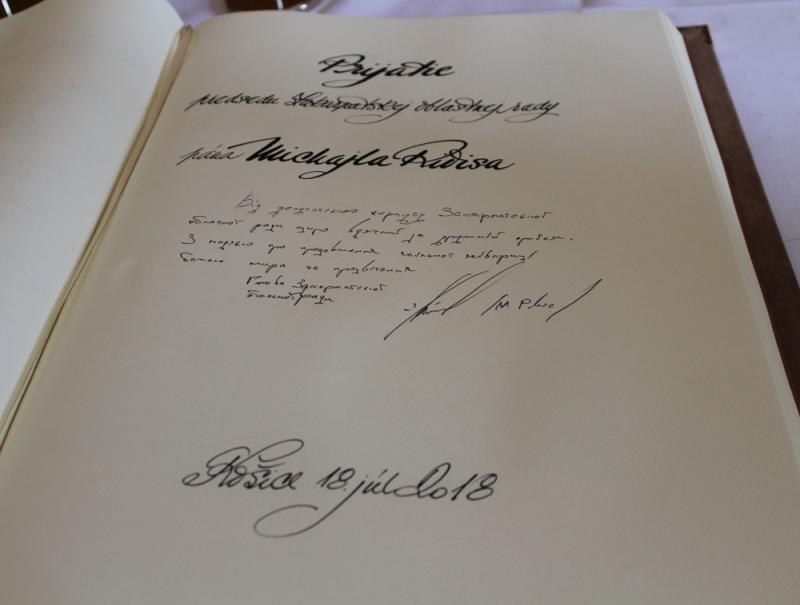 Prijatie
predsedu Zakarpatskej oblastnej rady
pána Michajla Rivisa
Від депутатського корпусу Закарпатської
обласної ради щиро вдячний за дружній прийом.
З надією про продовження спільної співпраці
бажаю миру та процвітання
Голова Закарпатської
обласної ради М. Рівіс
Košice 18. júl 2018